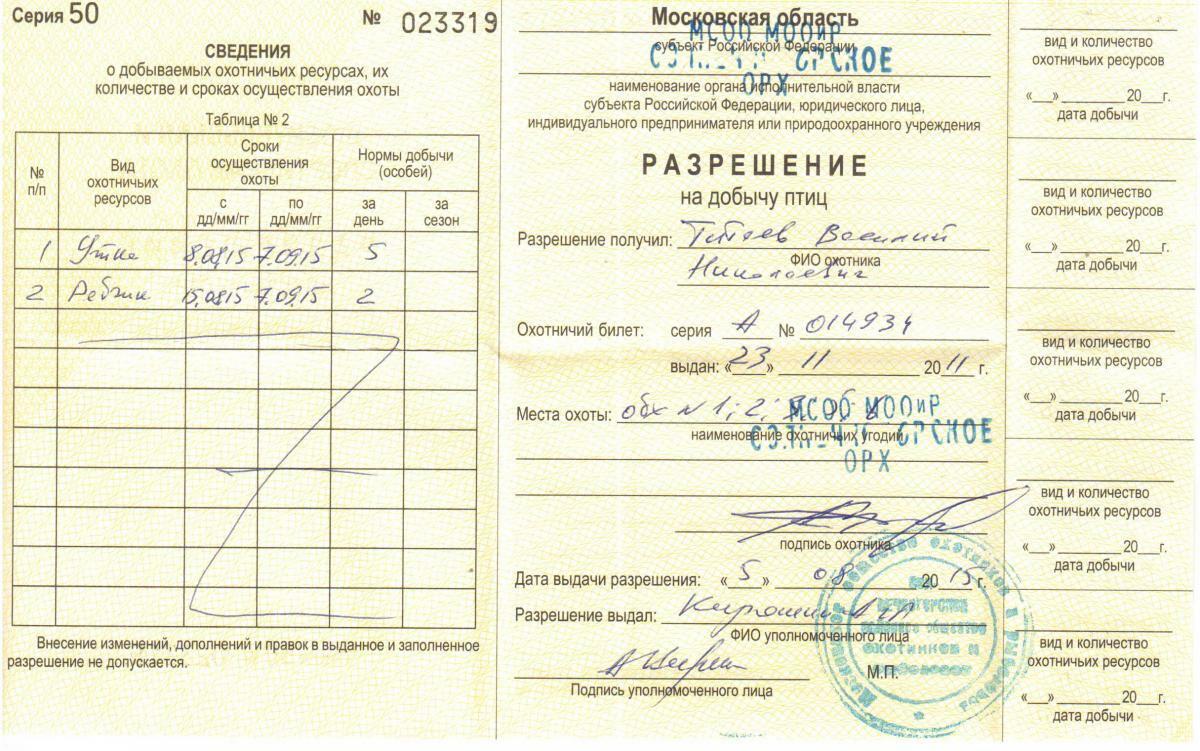 Серия 50 № 023319
СВЕДЕНИЯ
о добываемых охотничьих ресурсах, их
количестве и сроках осуществления охоты
Таблица № 2
№ п/п Вид охотничьих ресурсов Сроки осуществления охоты Нормы добычи (особей)
с дд/мм/гг по дд/мм/гг за день за сезон
1 Утка 8.08.15 7.09.15 5
2 Рябчик 15.08.15 7.09.15 2
Внесение изменений, дополнений и правок в выданное и заполненное
разрешение не допускается.
Московская область
субъект Российской Федерации
МСОО МООиР
ОРХ
наименование органа исполнительной власти
субъекта Российской Федерации, юридического лица,
индивидуального предпринимателя или природоохранного учреждения
РАЗРЕШЕНИЕ
на добычу птиц
Разрешение получил: Василий
ФИО охотника
Николаевич
Охотничий билет: серия А № 014934
выдан: «23» 11 2011 г.
Места охоты: обх № 1; 2;
МСОО МООиР
наименование охотничьих угодий
ОРХ
подпись охотника
Дата выдачи разрешения: «5» 08 2015 г.
Разрешение выдал:
ФИО уполномоченного лица
М.П.
Подпись уполномоченного лица
общество охотников и
охотников и
вид и количество
охотничьих ресурсов
«___» ________ 20___г.
дата добычи
вид и количество
охотничьих ресурсов
«___» ________ 20___г.
дата добычи
вид и количество
охотничьих ресурсов
«___» ________ 20___г.
дата добычи
вид и количество
охотничьих ресурсов
«___» ________ 20___г.
дата добычи
вид и количество
охотничьих ресурсов
«___» ________ 20___г.
дата добычи